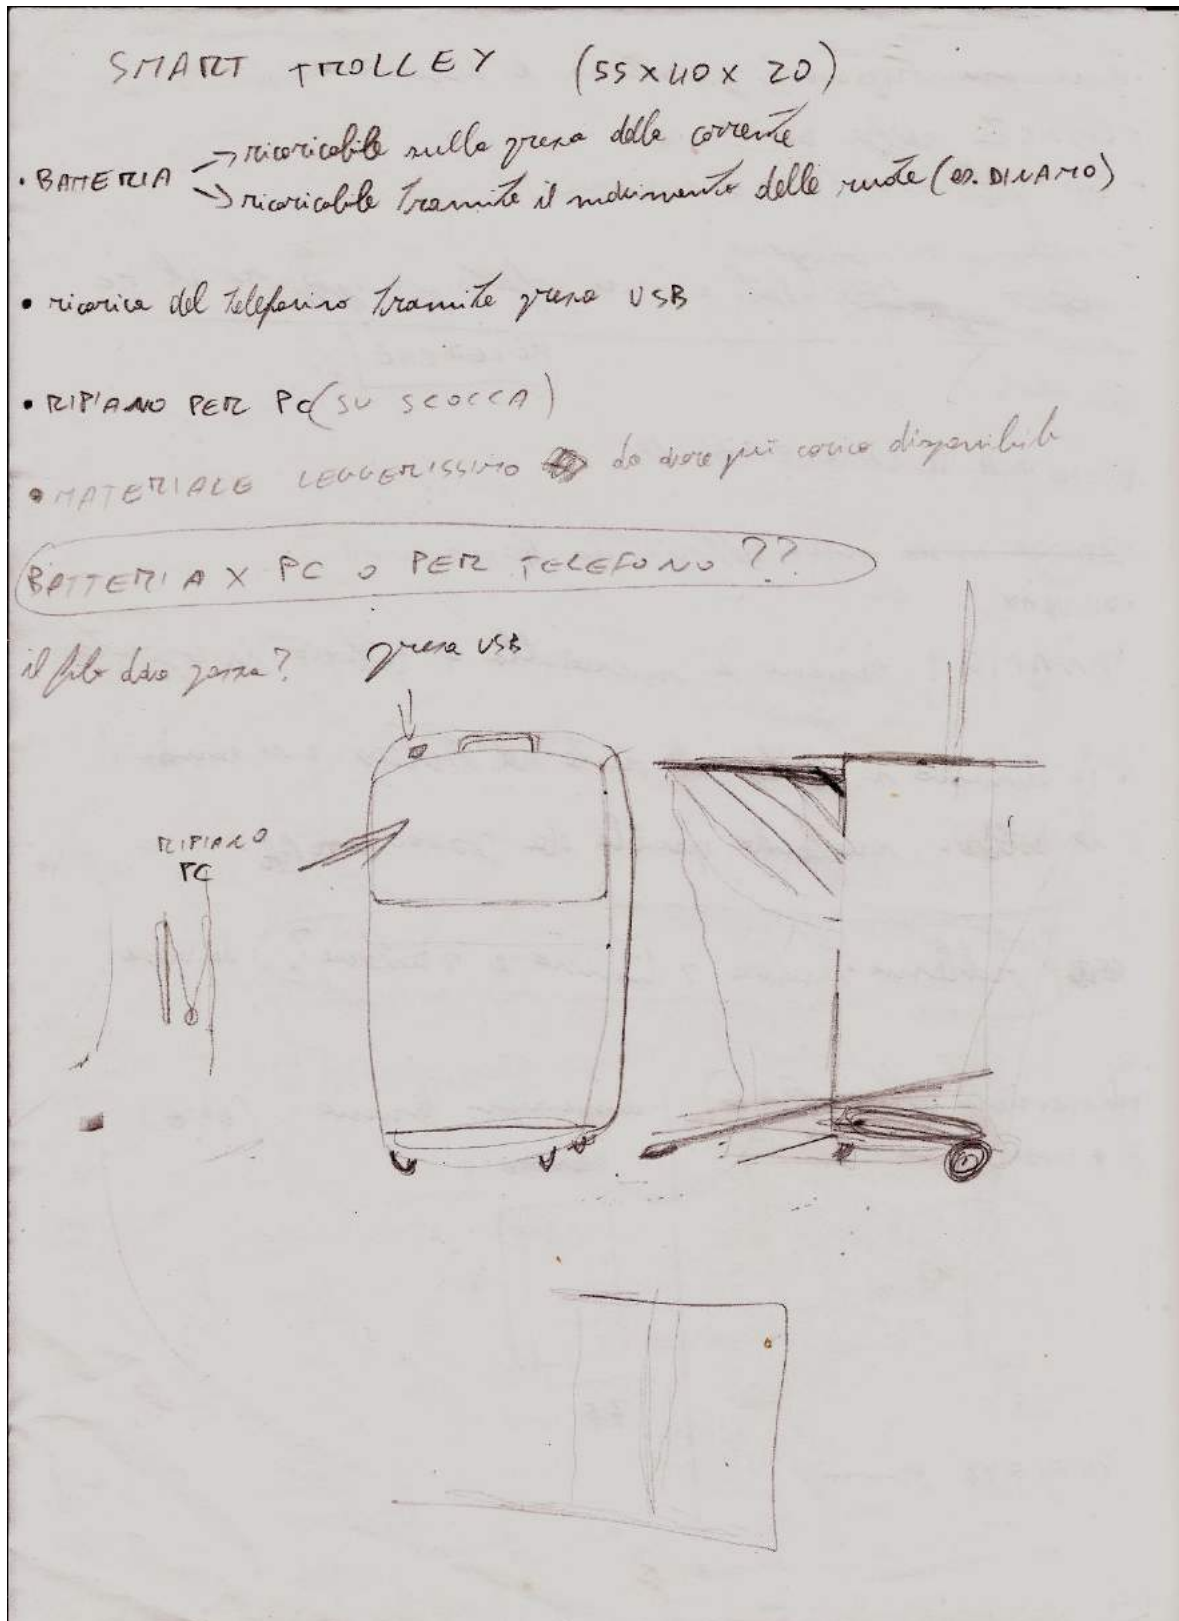 SMART TROLLEY (55x40x20)
• BATTERIA → ricaricabile sulla presa della corrente
→ ricaricabile tramite il movimento delle ruote (es. DINAMO)
• ricarica del telefonino tramite presa USB
• RIPIANO PER PC (SU SCOCCA)
• MATERIALE LEGGERISSIMO da avere più carico disponibile
BATTERIA X PC O PER TELEFONO ??
il filo dove passa? presa USB
RIPIANO
PC